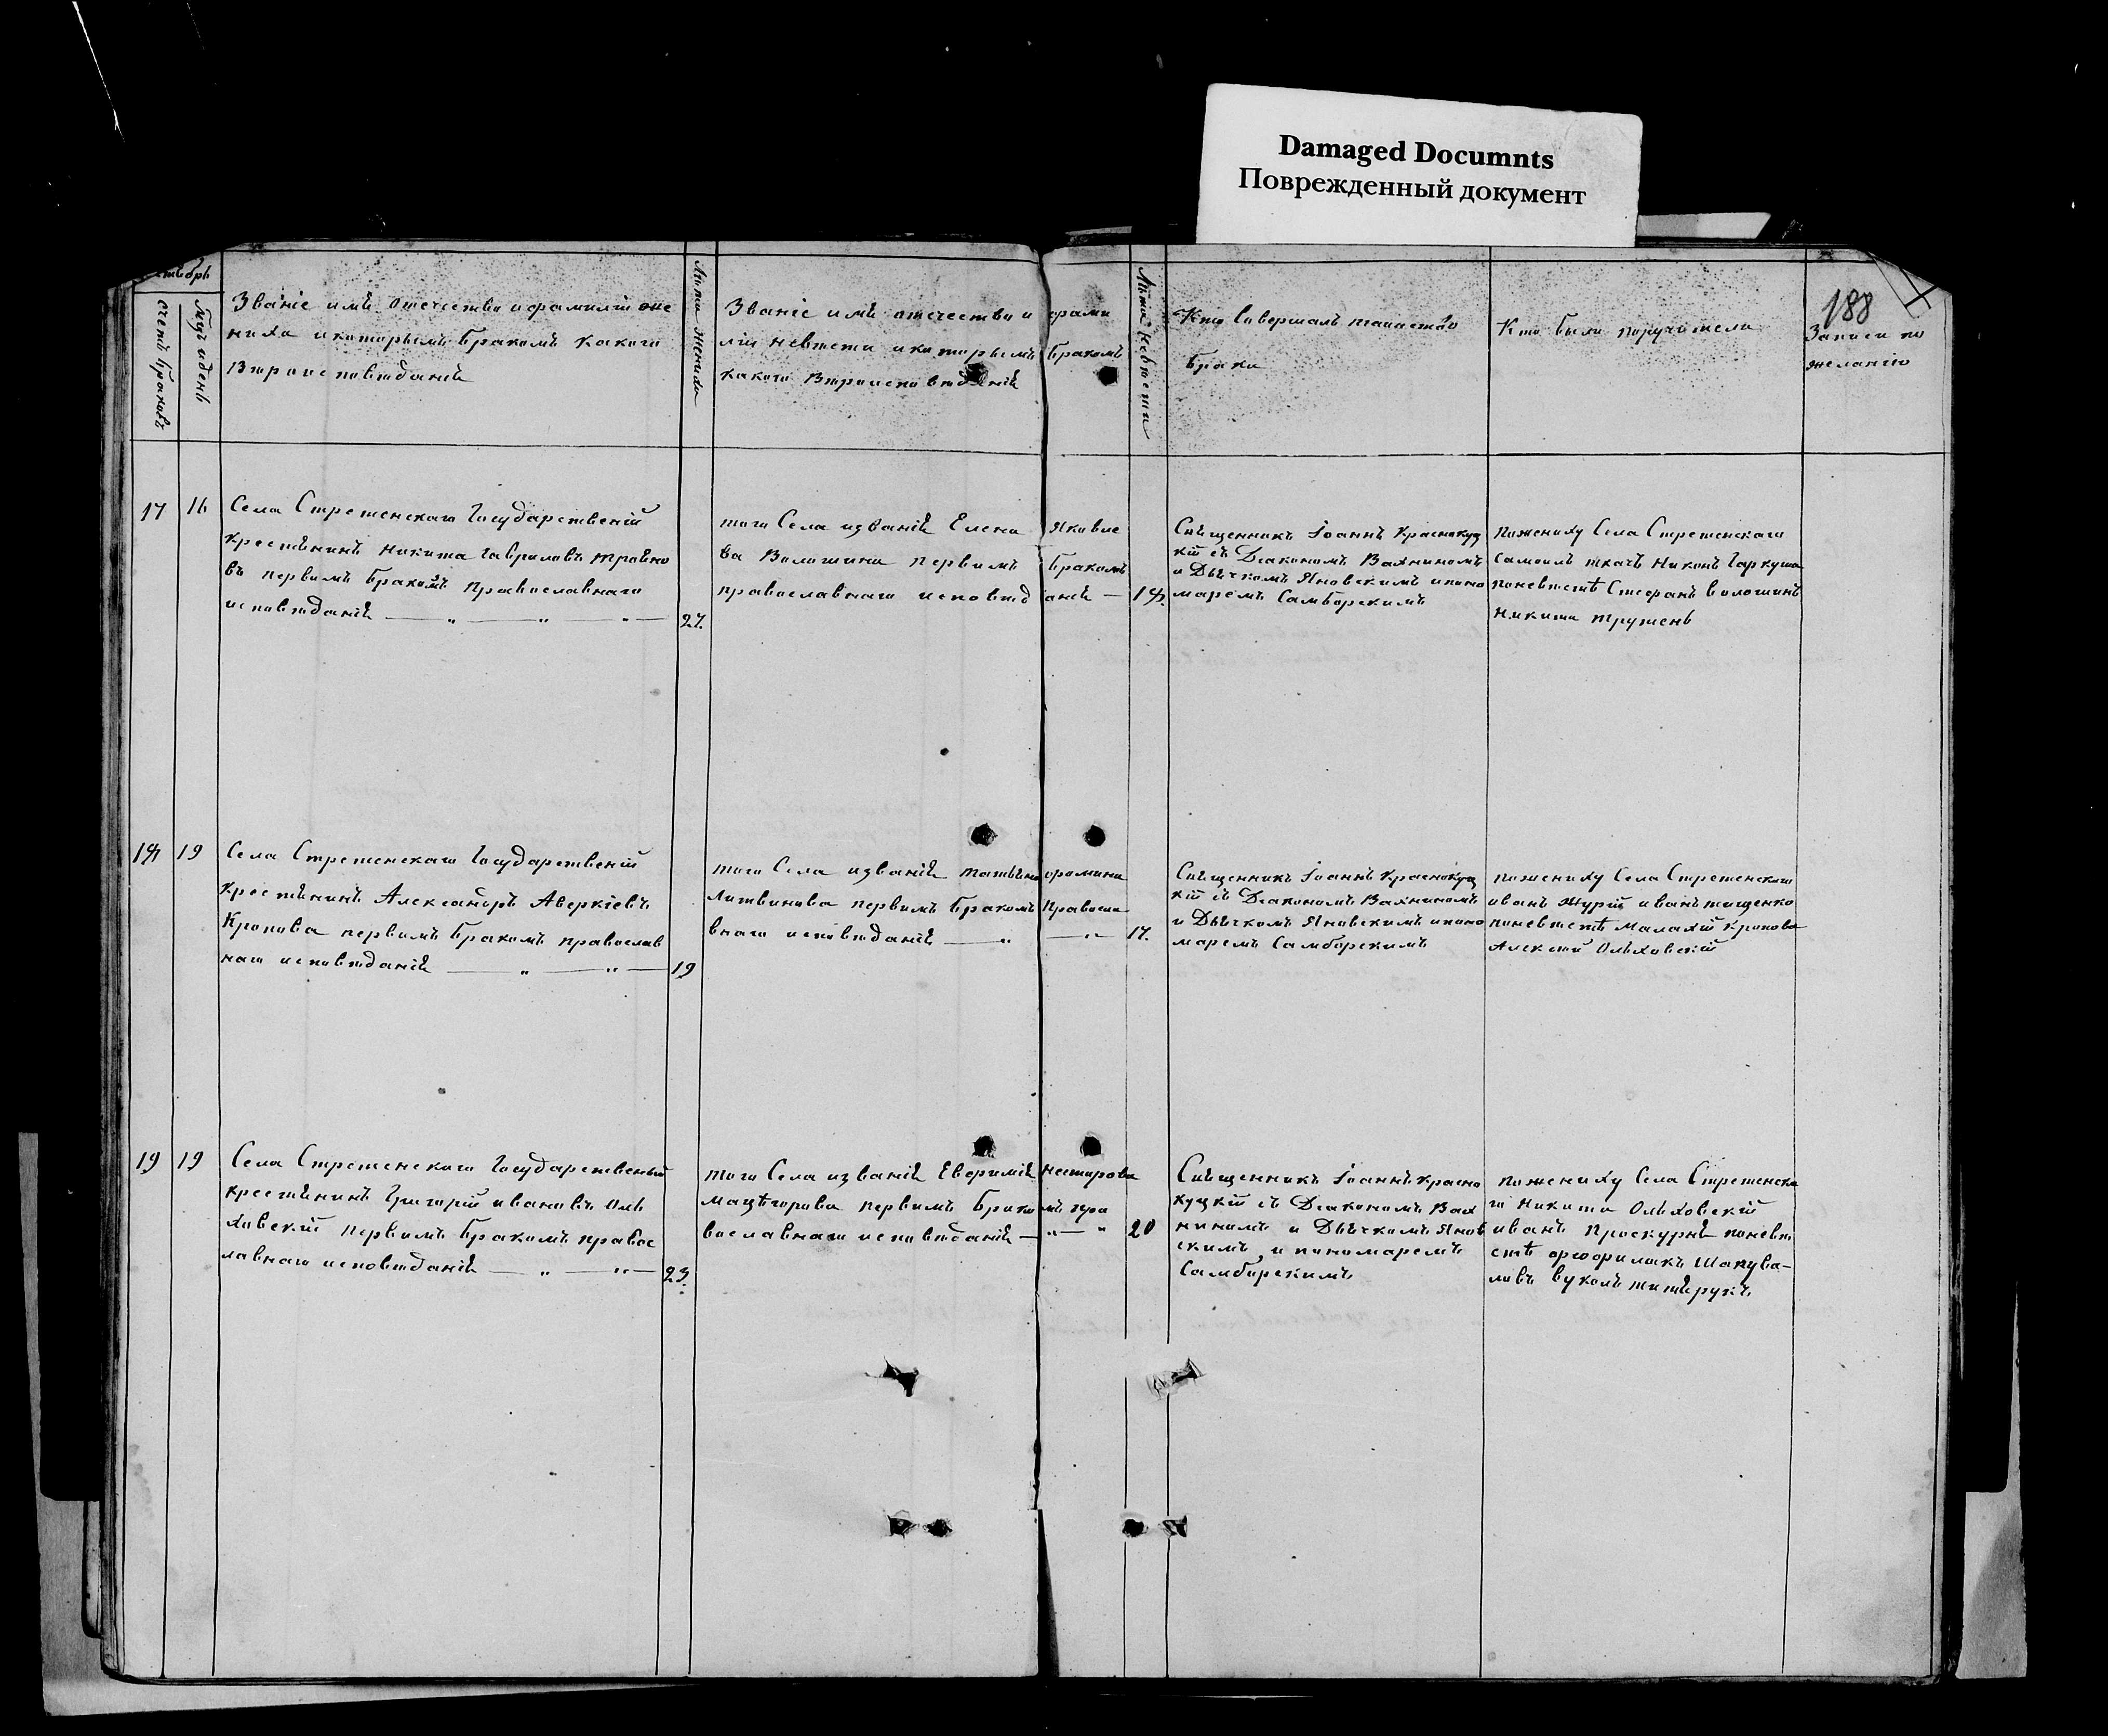 Damaged Documnts
Поврежденный документ
188
счетъ браковъ
Званіе имѣ отечество и фамилія же
ниха и которымъ бракомъ какого
Вѣроисповѣданій
Лѣта жениха
Званіе имѣ отечество и фами
лія невѣсти и которымъ бракомъ
какого Вѣроисповѣданій
Лѣта невѣсти
Кто Совершалъ таинство
брака
Кто были поручители
Записи по
желанію
17
16
Села Стретенскаго Государственій
крестянинъ Никита Гавриловъ
въ первимъ бракомъ православнаго
исповѣданій
27.
того Села изваній Елена Яковле
ва Волошина первимъ бракомъ
православнаго исповѣданій
18.
Священникъ Іоаннъ Краснокуц
кій съ Діакономъ Вахниномъ
и Дьячкомъ Яновскимъ и поно
маремъ Самборскимъ
пожениху Села Стретенскаго
Самоилъ ткачъ Никонъ Гаркуша
поневѣстѣ Стефанъ Волошинъ
Никита трутень
18
19
Села Стретенскаго Государственій
крестянинъ Александръ Аверкіевъ
Кропова первимъ бракомъ православ
наго исповѣданій
19
того Села изваній татіяна фомина
Литвинова первимъ бракомъ Правосла
внаго исповѣданій
17.
Священникъ Іоаннъ Краснокуц
кій съ Діакономъ Вахниномъ
и Дьячкомъ Яновскимъ и поно
маремъ Самборскимъ
пожениху Села Стретенскаго
иванъ журій иванъ тищенко
поневѣстѣ Малахій Кропова
Алексій Ольховскій
19
19
Села Стретенскаго Государственый
крестянинъ Григорій ивановъ Оль
ховскій первимъ бракомъ правос
лавнаго исповѣданій
23.
того Села изваній Евфимія Нестирова
Мацѣгорова первимъ бракомъ пра
вославнаго исповѣданій
20
Священникъ Іоаннъ Красно
куцкій съ Діакономъ Вах
ниномъ и Дьячкомъ Янов
скимъ и пономаремъ
Самборскимъ
пожениху Села Стретенска
го Никита Ольховскій
иванъ Проскурня поневѣ
стѣ Шапува-
ловъ вуколъ титярукъ